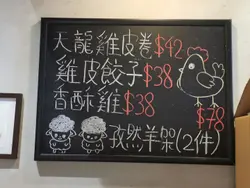 天龍雞皮卷$42
雞皮餃子$38
香酥雞$38
$78
孜然羊架(2件)